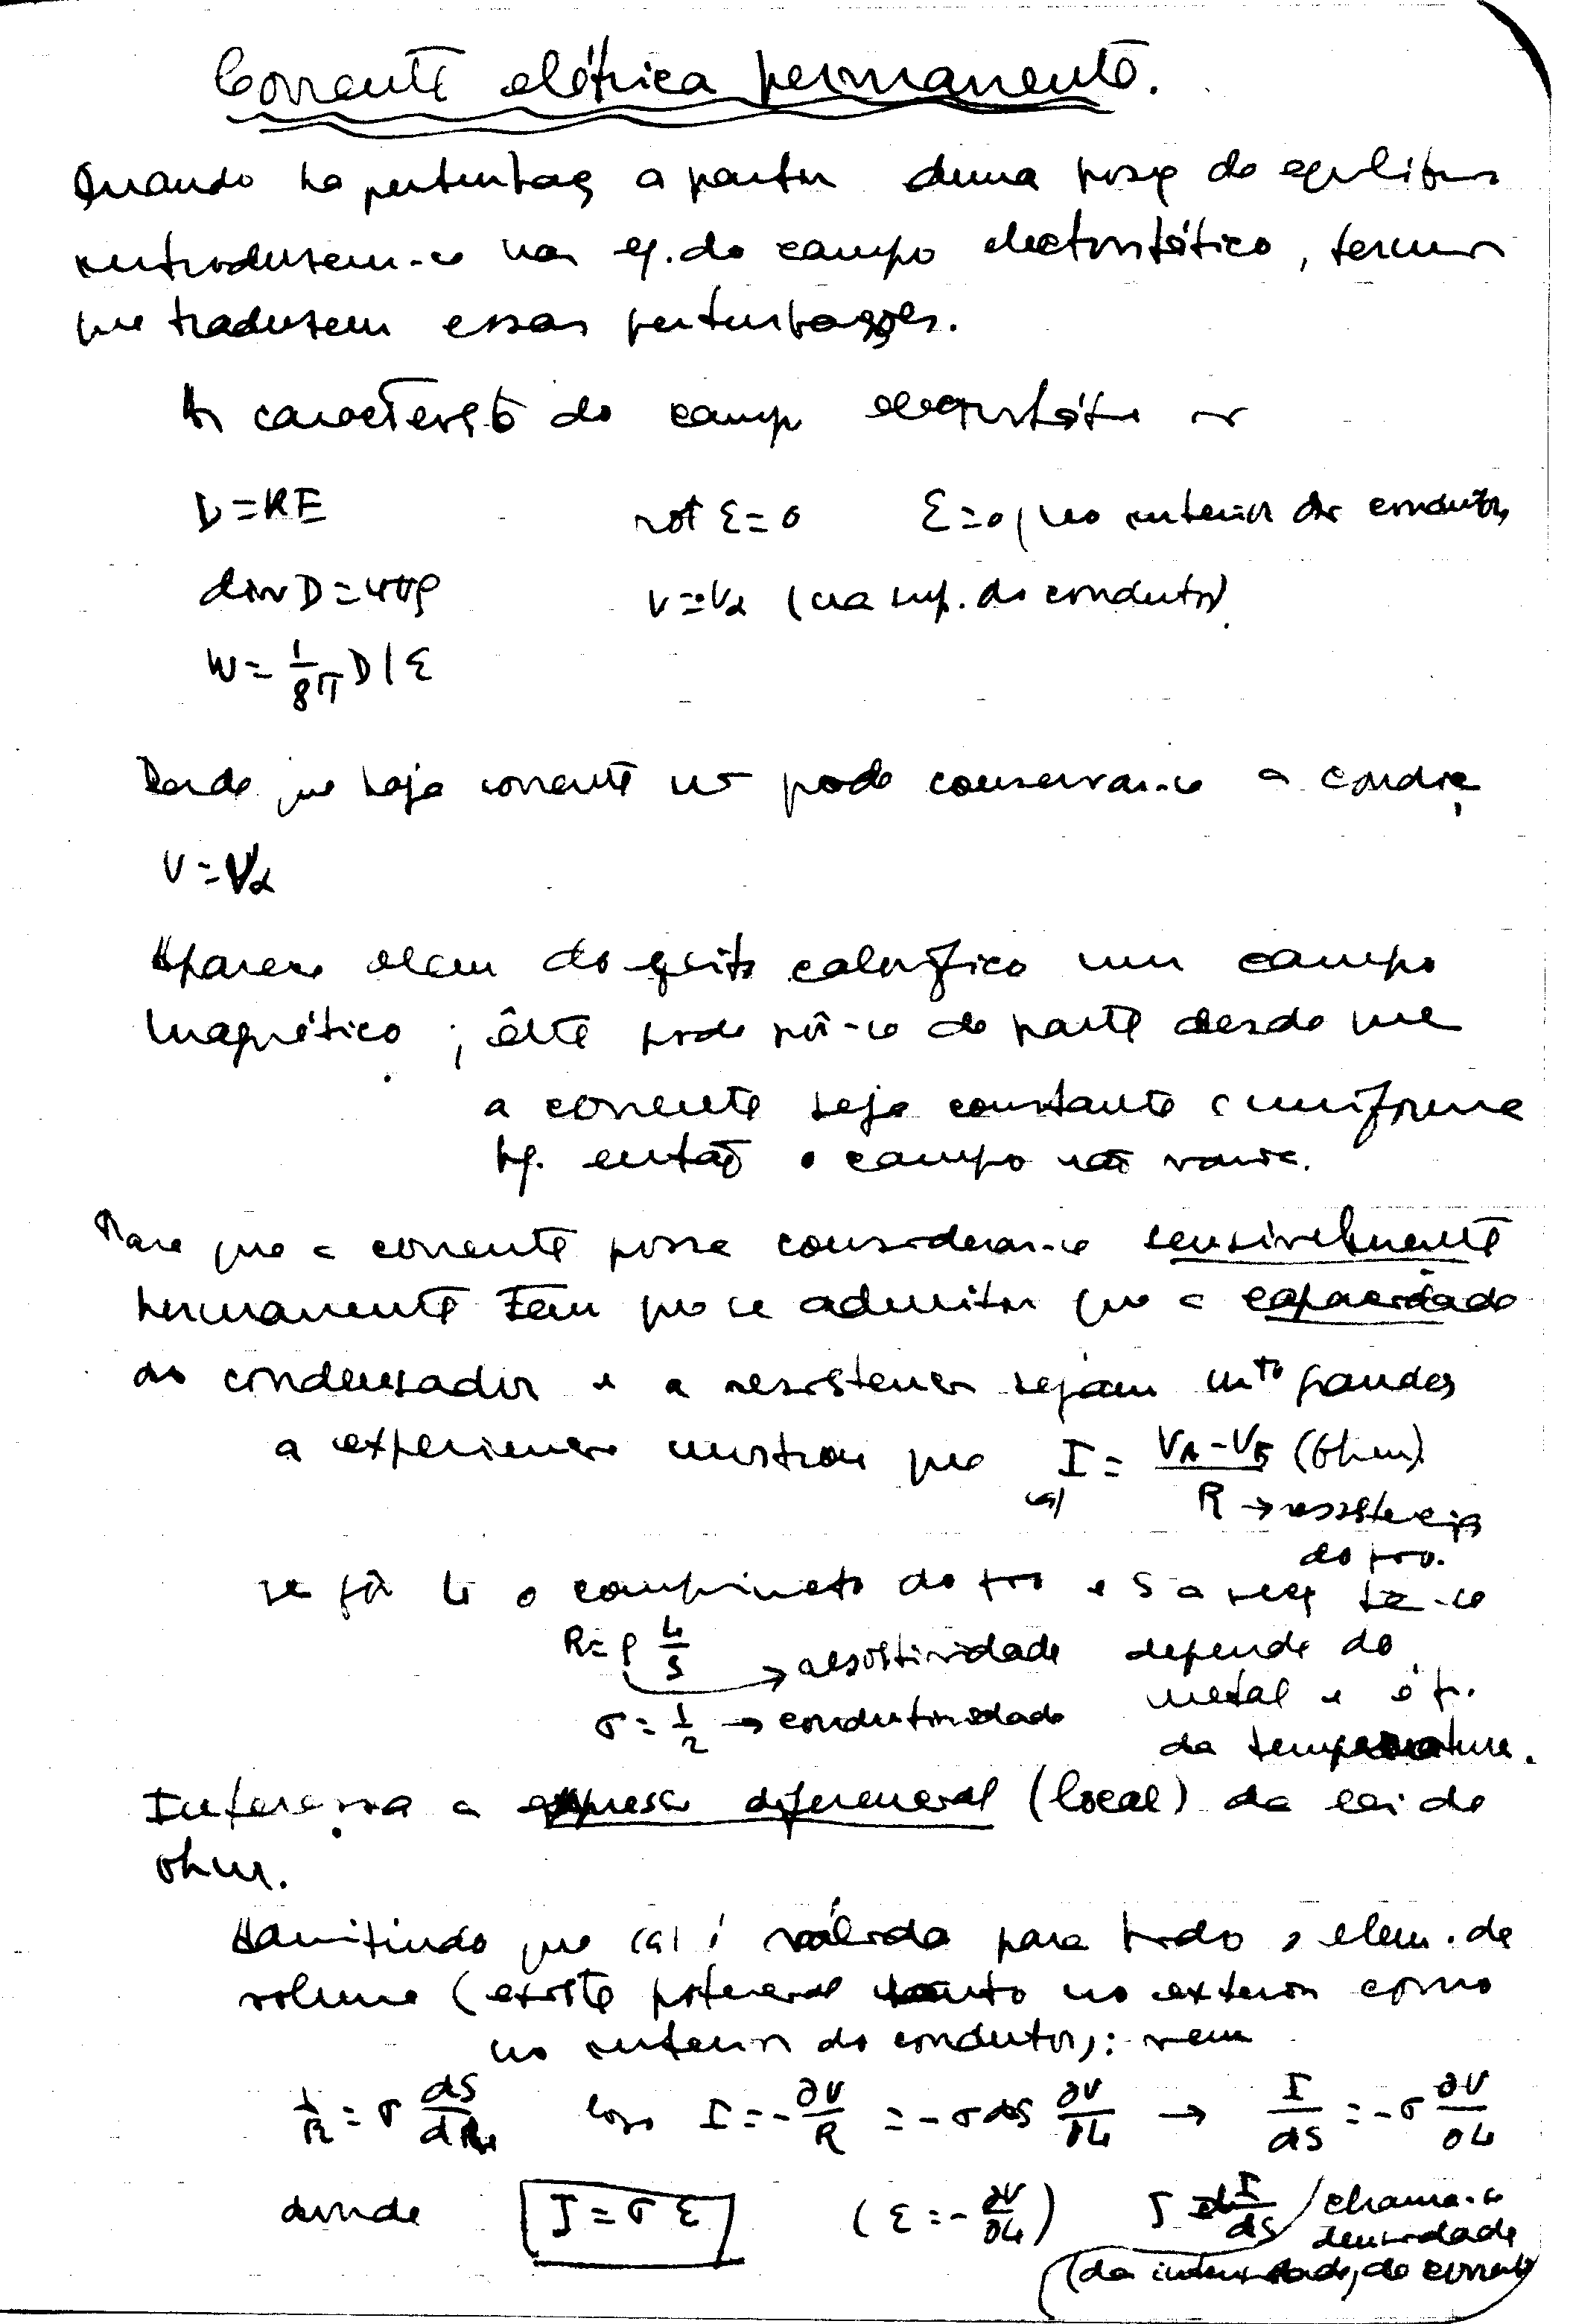 Corrente elétrica permanente.
Quando ha perturbaç a partir duma posiç de equilibrio
introdusem-se nas eq. do campo electrostático, termos
que tradusem essas perturbações.
As caracterist do campo electrostáti
D = KE rot ε = 0 ε = 0 (no interior do condutor
div D = 4πρ V = Vα (na sup. do condutor)
W = 1/8π D | ε
Desde que haja corrente não pode conservar-se a condiç
V = Vα
Aparece alem do efeito calorífico um campo
magnético ; êste pode pôr-se de parte desde que
a corrente seja constante e uniforme
pq. então o campo não varia.
Para que a corrente possa considerar-se sensivelmente
permanente tem que se admitir que a capacidade
do condensador e a resistencia sejam mto grandes
a experiencia mostrou que I = VA - VB / R (Ohm)
(a) R → resistencia
do fio.
se fôr L o comprimeto do fio e S a secç te-se
R = ρ L/S → resistividade depende do
metal e é f.
σ = 1/r → condutividade
da temperatura.
Interessa a expressã diferencial (local) da lei de
Ohm.
Admitindo que (a) é válida para todo o elem. de
volume (existe potencial tanto no exterior como
no interior do condutor): vem
1/R = σ dS/dL logo I = - ∂V/R = - σ dS ∂V/∂L → I/dS = - σ ∂V/∂L
donde J = σ ε (ε = - ∂V/∂L) J I/dS / chama-se
densidade
(da intensidade) de corrente